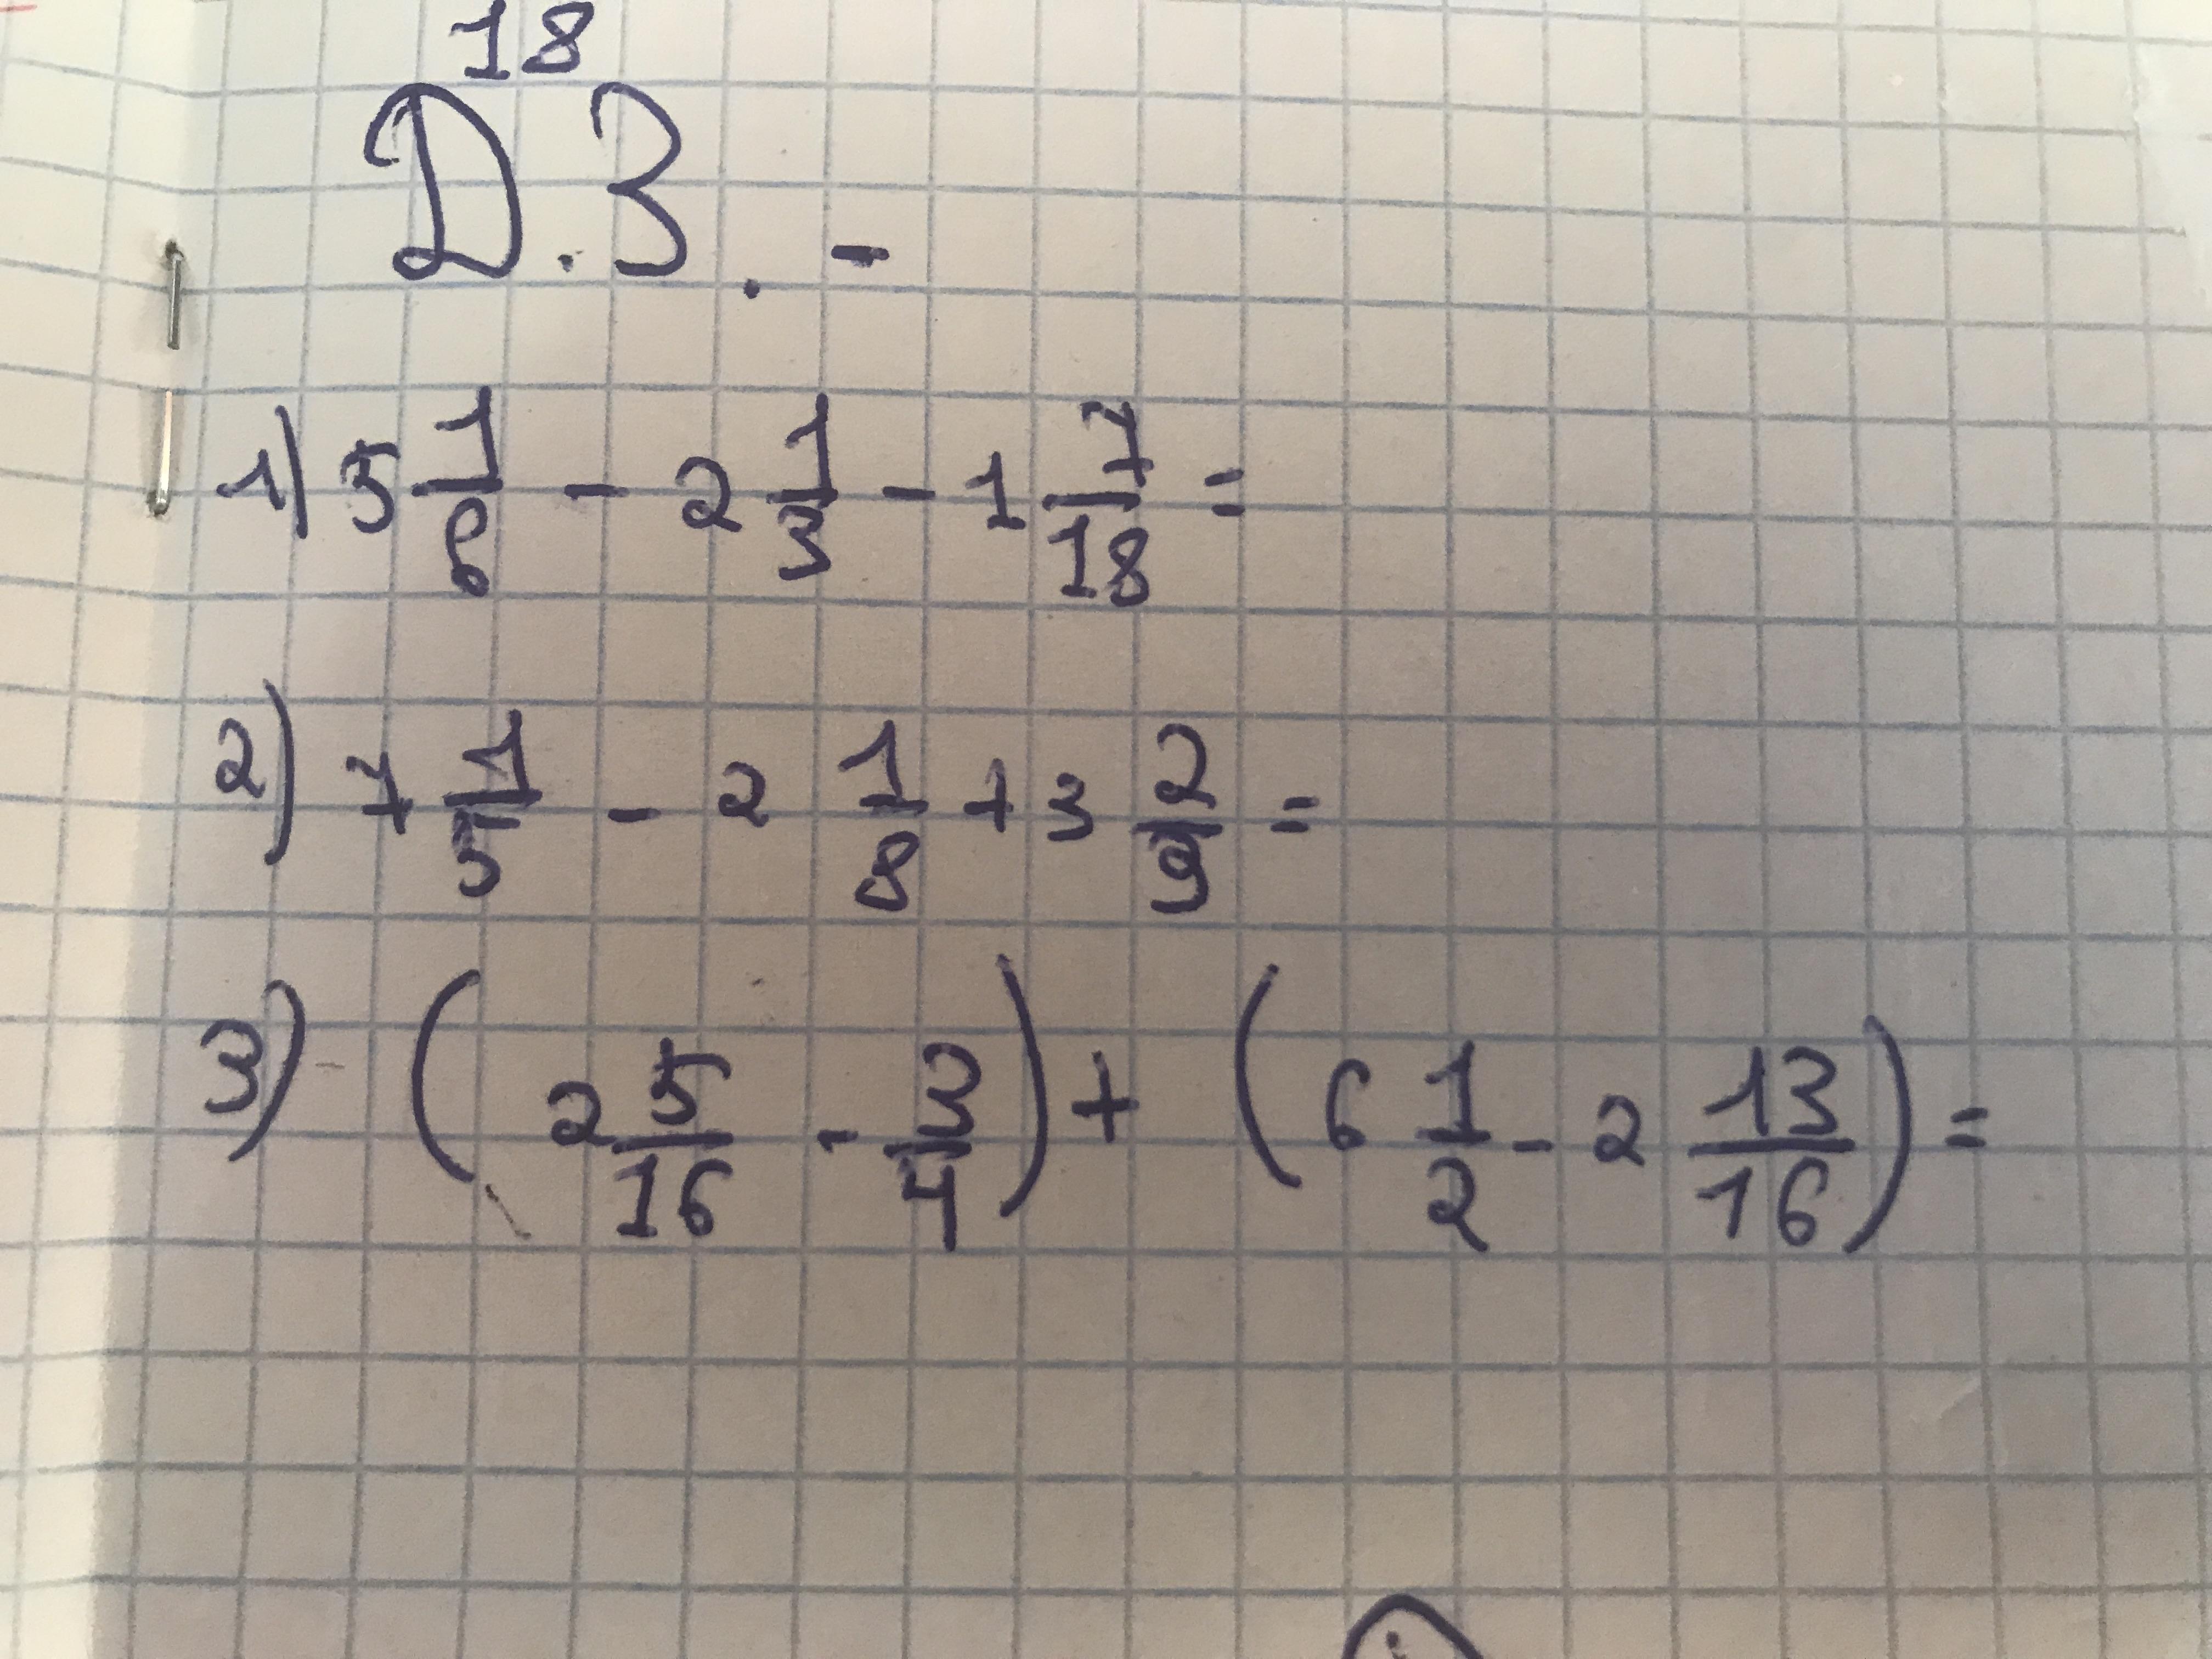 18
D.З.-
1) 5 1/6 - 2 1/3 - 1 7/18 =
2) 7 1/5 - 2 1/8 + 3 2/9 =
3) (2 5/16 - 3/4) + (6 1/2 - 2 13/16) =